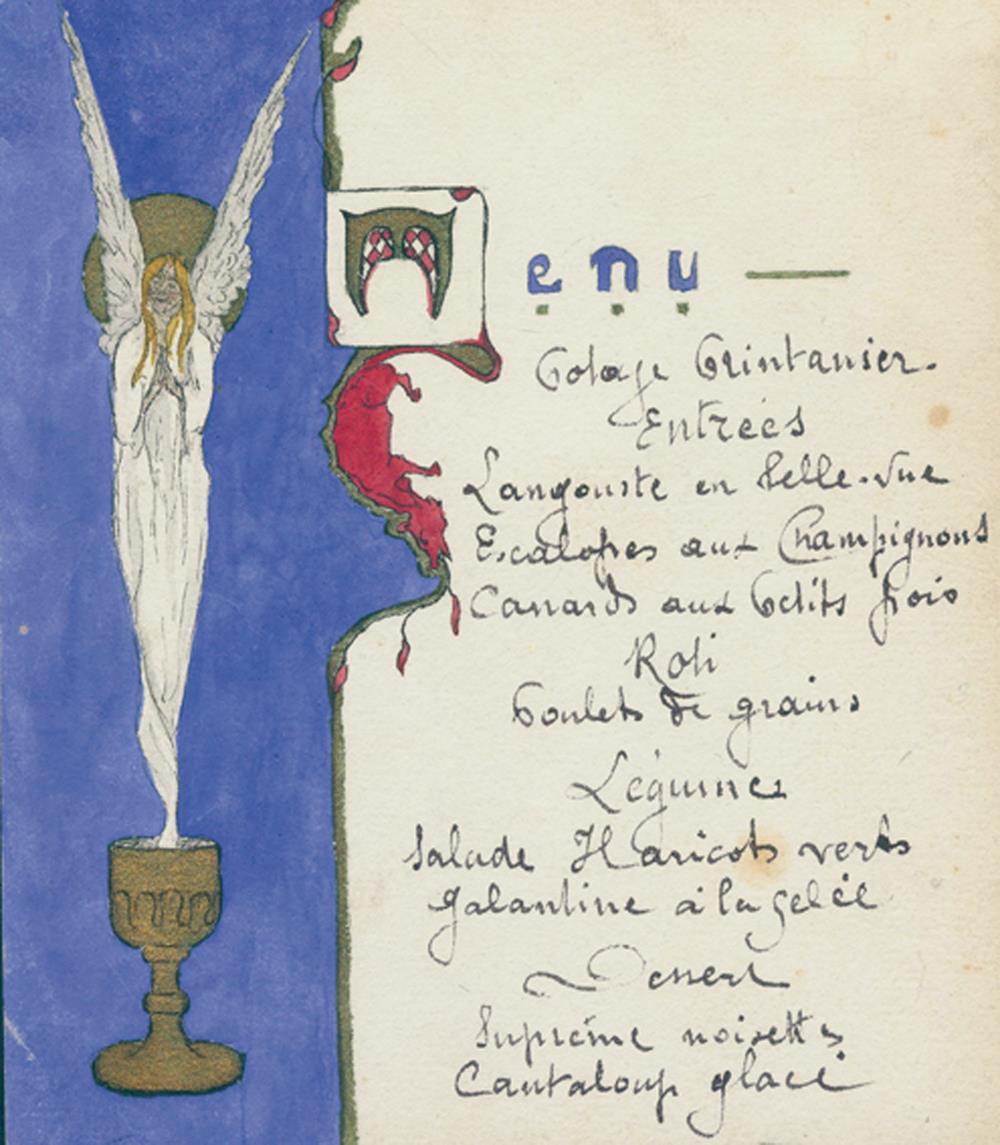 Menu
Potage Printanier.
Entrées
Langouste en belle-vue
Escalopes aux Champignons
Canards aux Petits pois
Roti
Poulets de grains
Légumes
Salade Haricots verts
Galantine à la gelée
Dessert
Suprême noisettes
Cantaloup glacé